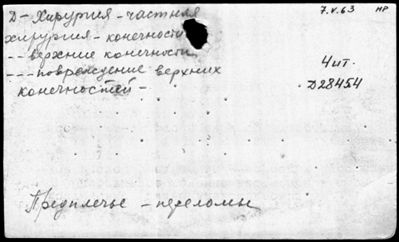 Д - Хирургия - частная
хирургия - конечности
- - верхние конечности
- - - повреждение верхних
конечностей -
7.V.63 НР
Чит.
D28454
Предплечье - переломы